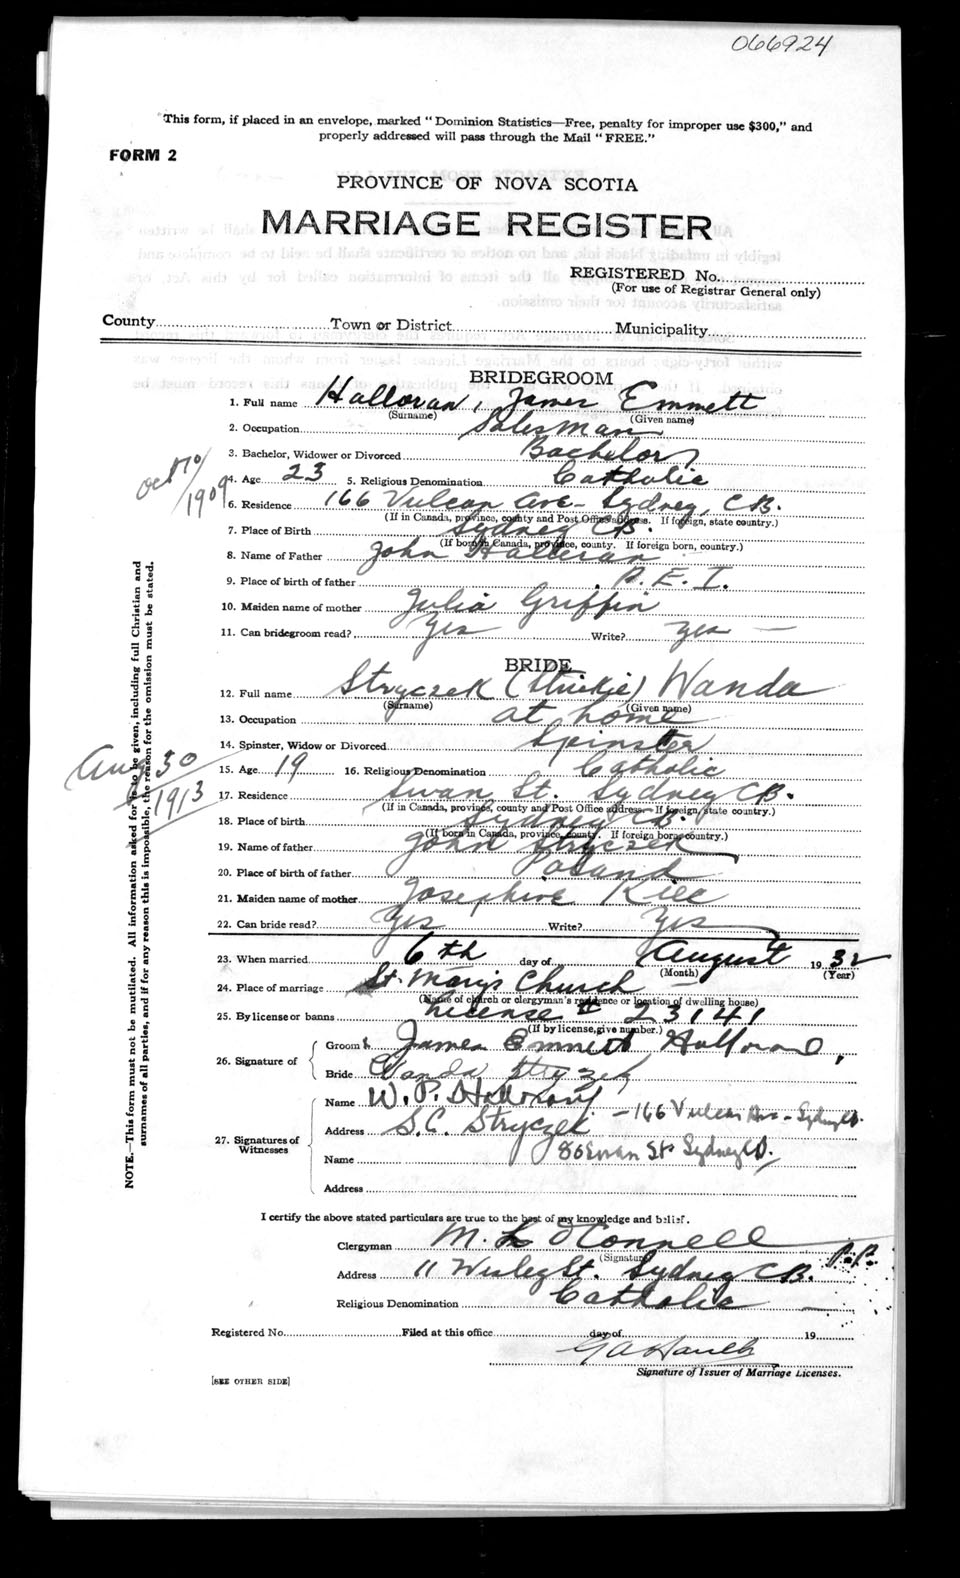 066924
This form, if placed in an envelope, marked "Dominion Statistics—Free, penalty for improper use $300," and
properly addressed will pass through the Mail "FREE."
FORM 2
PROVINCE OF NOVA SCOTIA
MARRIAGE REGISTER
REGISTERED No.
(For use of Registrar General only)
County Town or District Municipality
BRIDEGROOM
1. Full name Halloran, James Emmett
(Surname) (Given name)
2. Occupation Salesman
3. Bachelor, Widower or Divorced Bachelor
Oct 10/1909
4. Age 23 5. Religious Denomination Catholic
6. Residence 166 Vulcan Ave - Sydney, C.B.
(If in Canada, province, county and Post Office address. If foreign, state country.)
7. Place of Birth Sydney C.B.
(If born in Canada, province, county. If foreign born, country.)
8. Name of Father John Halloran
9. Place of birth of father P.E.I.
10. Maiden name of mother Julia Griffin
11. Can bridegroom read? Yes Write? Yes —
BRIDE
12. Full name Stryczek (Stuckie) Wanda
(Surname) (Given name)
13. Occupation at home
14. Spinster, Widow or Divorced Spinster
Aug 30 1913
15. Age 19 16. Religious Denomination Catholic
17. Residence Swan St. Sydney C.B.
(If in Canada, province, county and Post Office address. If foreign, state country.)
18. Place of birth Sydney C.B.
(If born in Canada, province, county. If foreign born, country.)
19. Name of father John Stryczek
20. Place of birth of father Poland
21. Maiden name of mother Josephine
22. Can bride read? Yes Write? Yes
23. When married 6th day of August 1932
(Month) (Year)
24. Place of marriage St. Mary's Church —
(Name of church or clergyman's residence or location of dwelling house)
25. By license or banns License # 23141
(If by license, give number.)
26. Signature of
Groom James Emmett Halloran,
Bride Wanda Stryczek
27. Signatures of Witnesses
Name W. P. Halloran - 166 Vulcan Ave - Sydney
Address S.C. Stryczek
Name 80 Swan St Sydney
Address
NOTE.—This form must not be mutilated. All information asked for is to be given, including full Christian and
surnames of all parties, and if for any reason this is impossible, the reason for the omission must be stated.
I certify the above stated particulars are true to the best of my knowledge and belief.
Clergyman M. O'Connell P.P.
(Signature)
Address 11 Wesley St. Sydney C.B.
Religious Denomination Catholic —
Registered No. Filed at this office day of 19
Signature of Issuer of Marriage Licenses.
[SEE OTHER SIDE]